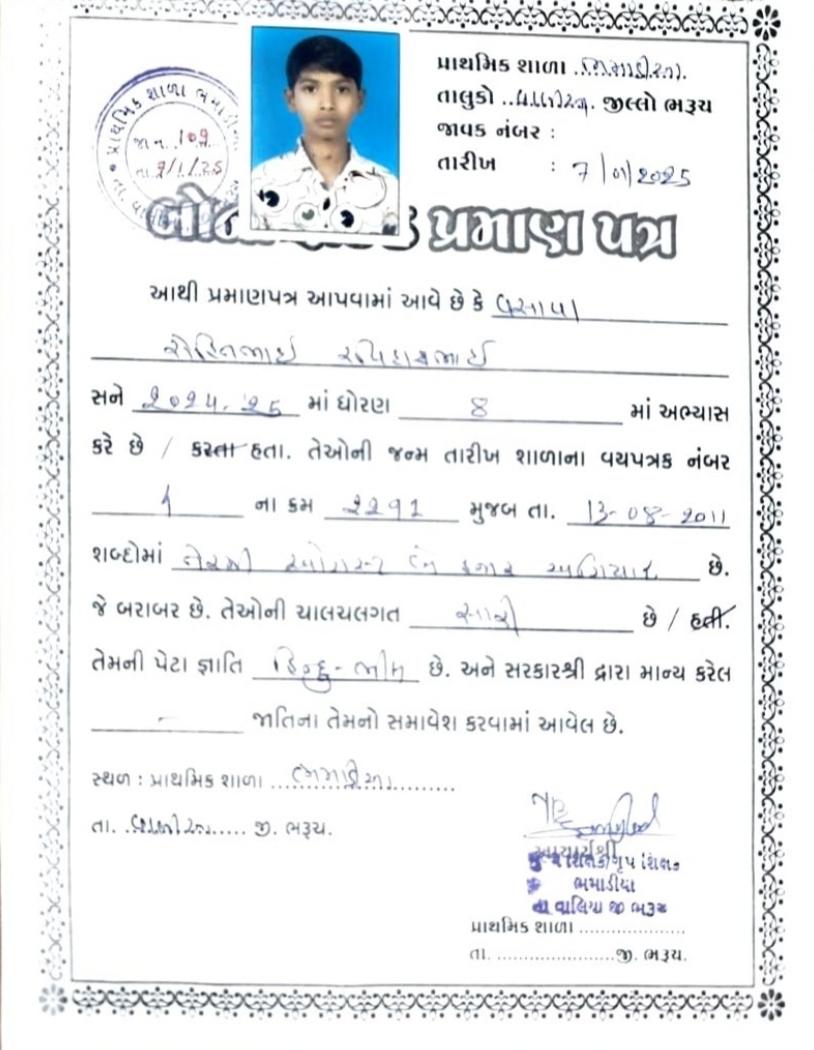 પ્રાથમિક શાળા ભમાડીયા
જા.ન. 109
તા. 7/1/25
પ્રાથમિક શાળા .ભમાડીયા.
તાલુકો ..વાલીયા. જીલ્લો ભરૂચ
જાવક નંબર :
તારીખ : 7/01/2025
પ્રમાણ પત્ર
આથી પ્રમાણપત્ર આપવામાં આવે છે કે વસાવા
રોહિતભાઈ
સને 2024-25 માં ધોરણ 8 માં અભ્યાસ
કરે છે / કરતા હતા. તેઓની જન્મ તારીખ શાળાના વયપત્રક નંબર
ના ક્રમ 2291 મુજબ તા. 13-08-2011
શબ્દોમાં તેરમી ઓગસ્ટ બે હજાર અગિયાર છે.
જે બરાબર છે. તેઓની ચાલચલગત સારી છે / હતી.
તેમની પેટા જ્ઞાતિ હિન્દુ-ભીલ છે. અને સરકારશ્રી દ્વારા માન્ય કરેલ
- જાતિના તેમનો સમાવેશ કરવામાં આવેલ છે.
સ્થળ : પ્રાથમિક શાળા ..ભમાડીયા..........
તા. .વાલીયા..... જી. ભરૂચ.
આચાર્યશ્રી
ભમાડીયા
તા વાલિયા જી ભરૂચ
પ્રાથમિક શાળા ....................
તા. ......................જી. ભરૂચ.